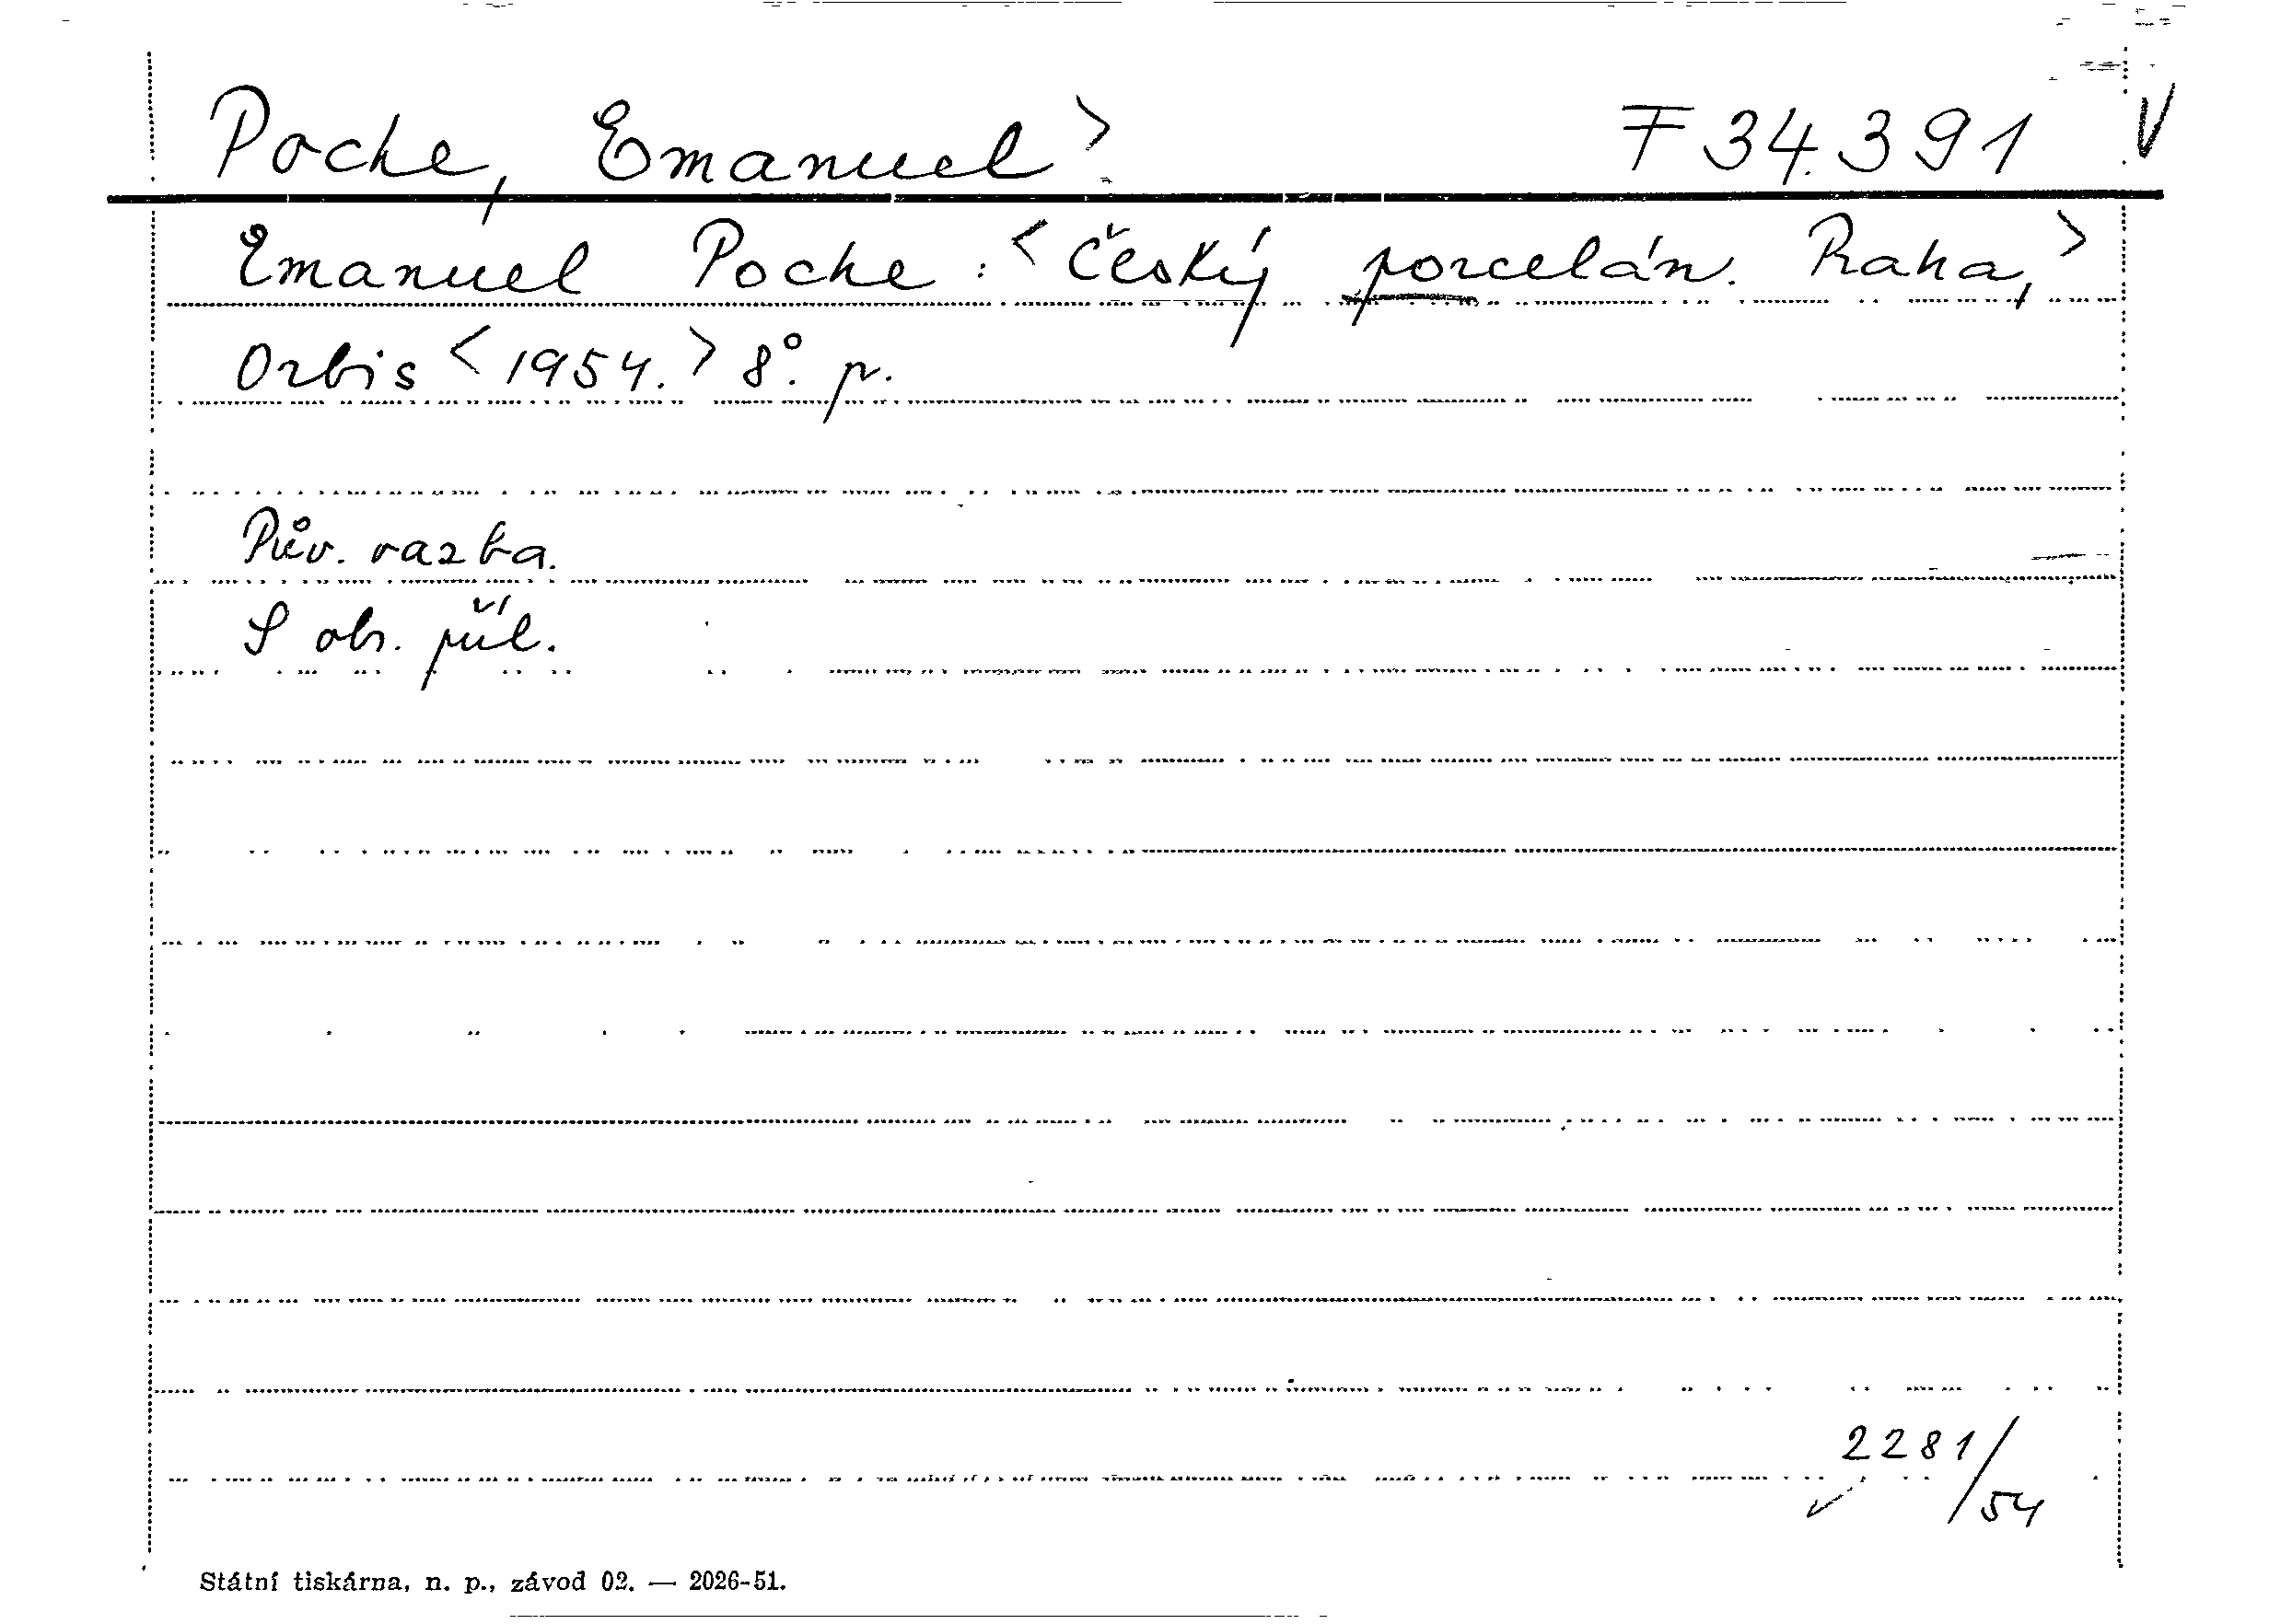 Poche, Emanuel> F 34.391 V
Emanuel Poche: <Český porcelán. Praha,>
Orbis <1954.> 8°. p.
Pův. vazba.
S obr. příl.
2281/54
Státní tiskárna, n. p., závod 02. — 2026-51.